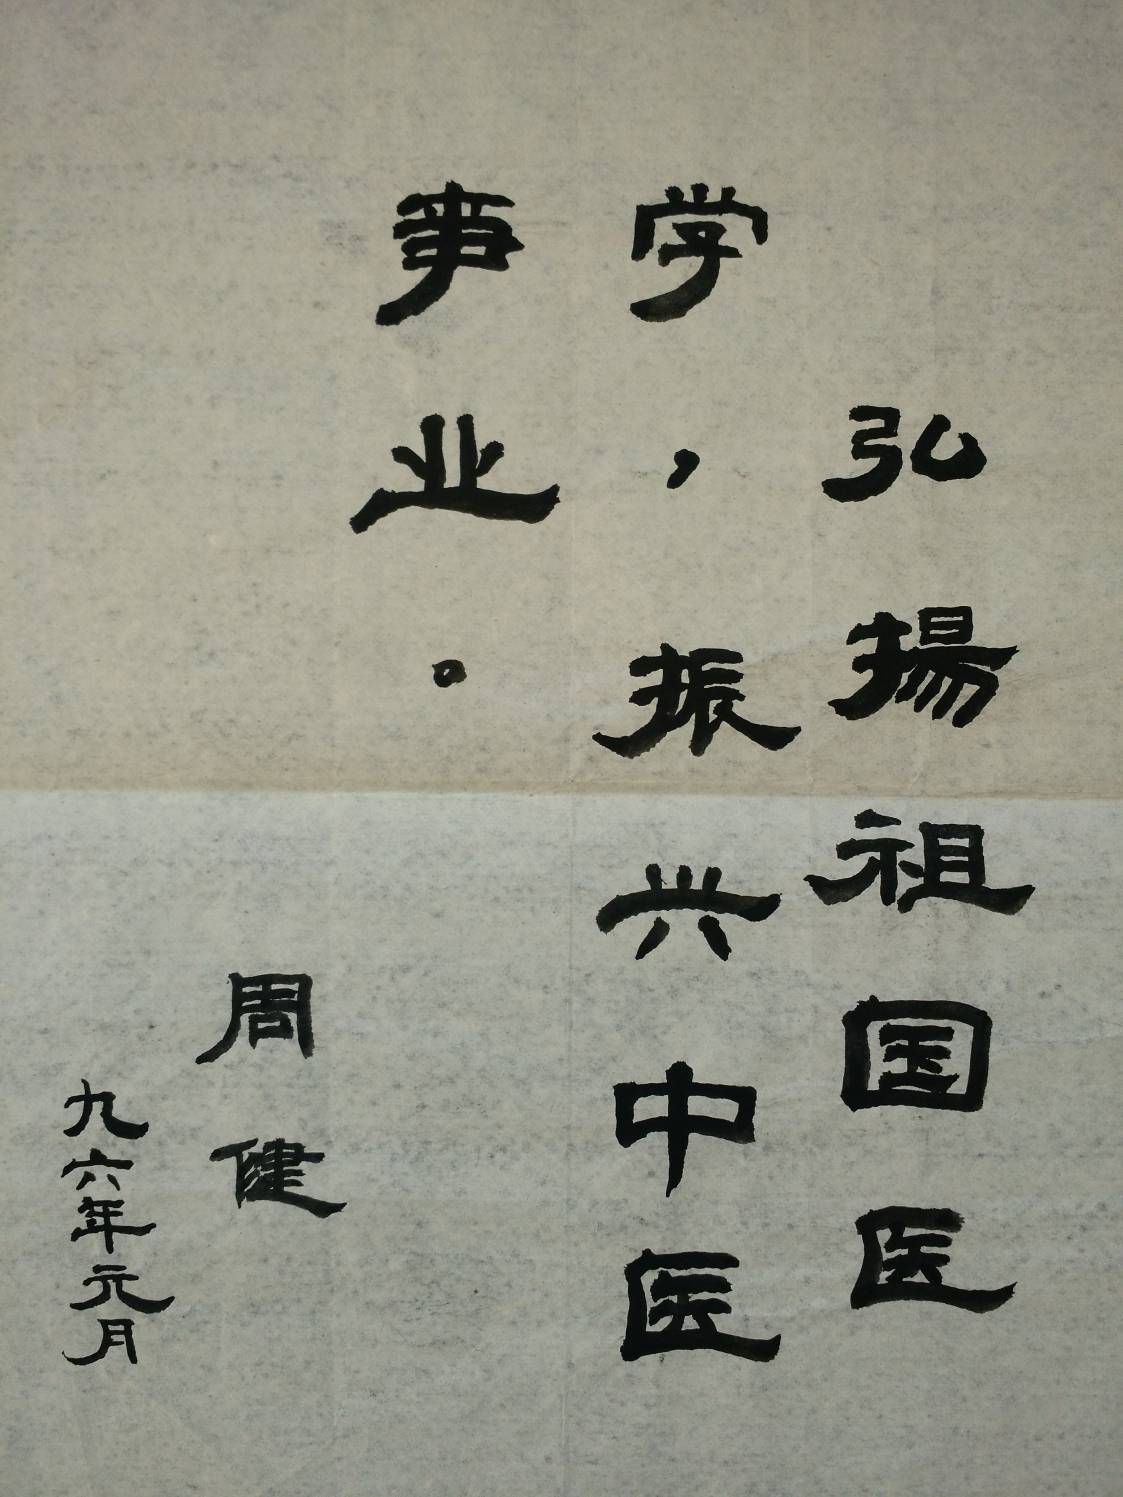 弘揚祖国医
学，振兴中医
事业。
周健
九六年元月